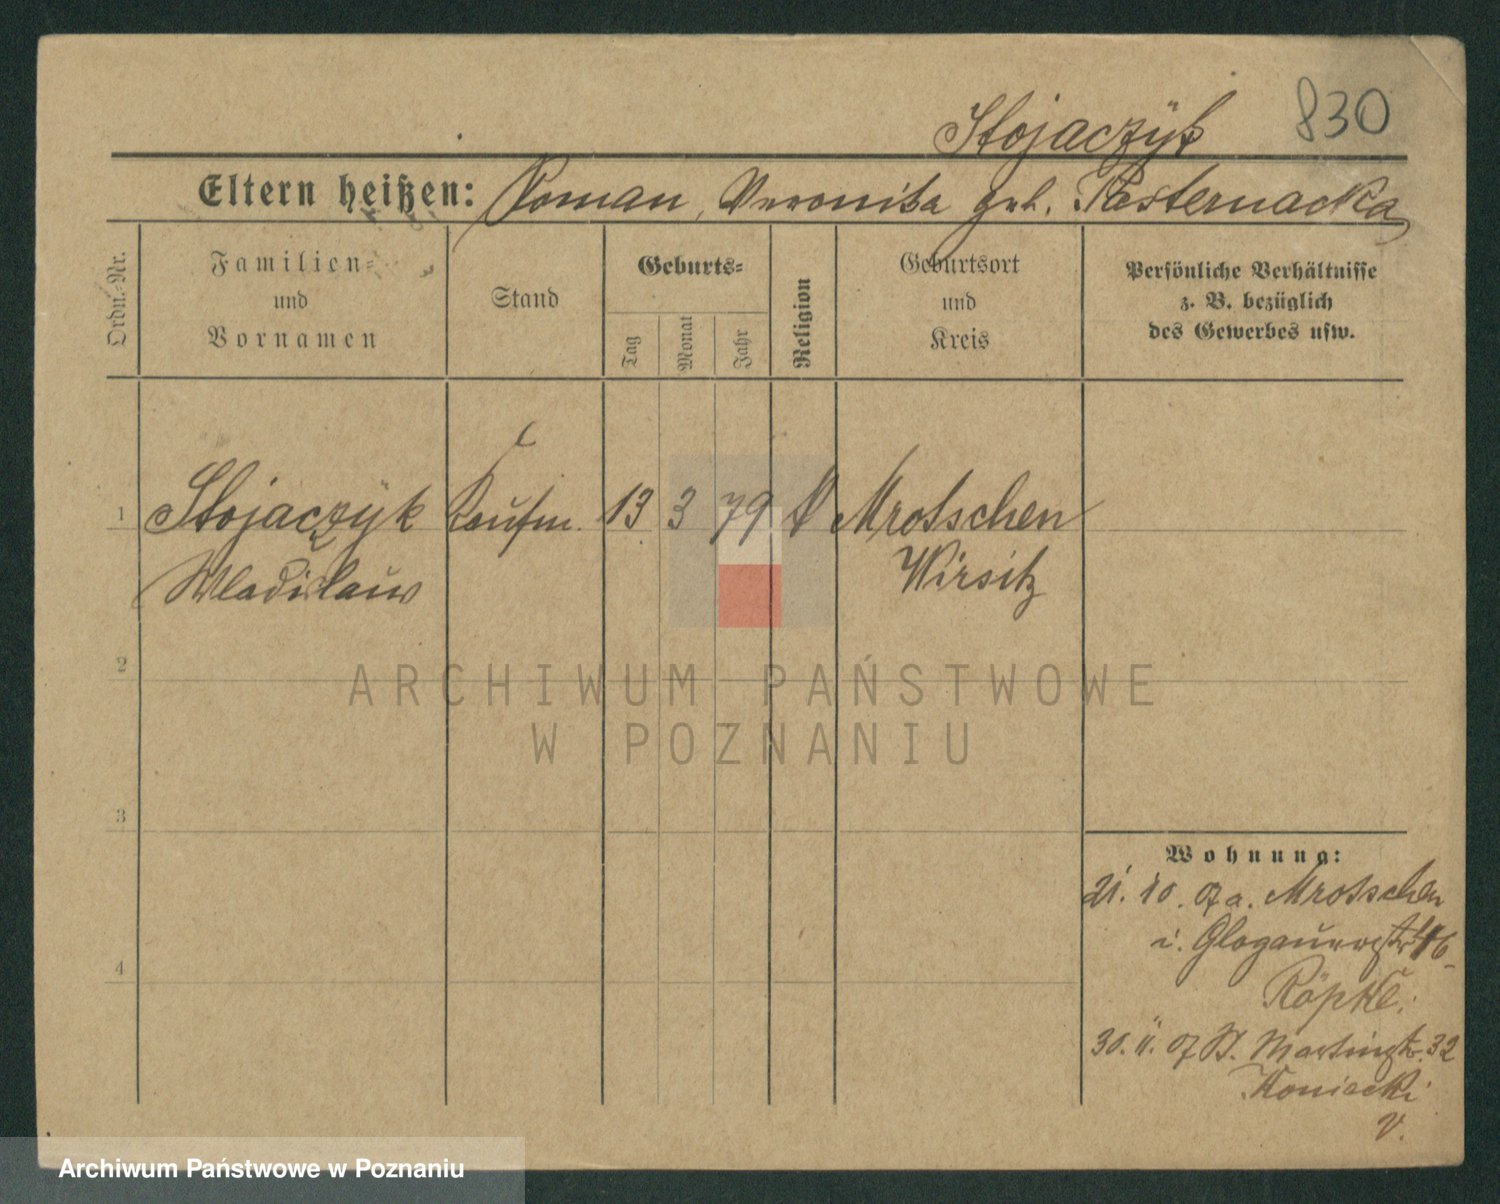 Stojaczÿk 830
Eltern heißen: Roman, Veronika geb. Pasternacka
Ordn.-Nr.
Familien-
und
Vornamen
Stand
Geburts-
Tag
Monat
Jahr
Religion
Geburtsort
und
Kreis
Persönliche Verhältnisse
z. B. bezüglich
des Gewerbes usw.
1 Stojaczÿk Kaufm. 13 3 79 Mrotschen
Wladislaus Wirsitz
2
ARCHIWUM PAŃSTWOWE
W POZNANIU
3
4
Wohnung:
21. 10. 07 a. Mrotschen
i. Glogauerstr
Röpke.
30. 11. 07 St. Martinstr. 32
Koniecki
V.
Archiwum Państwowe w Poznaniu